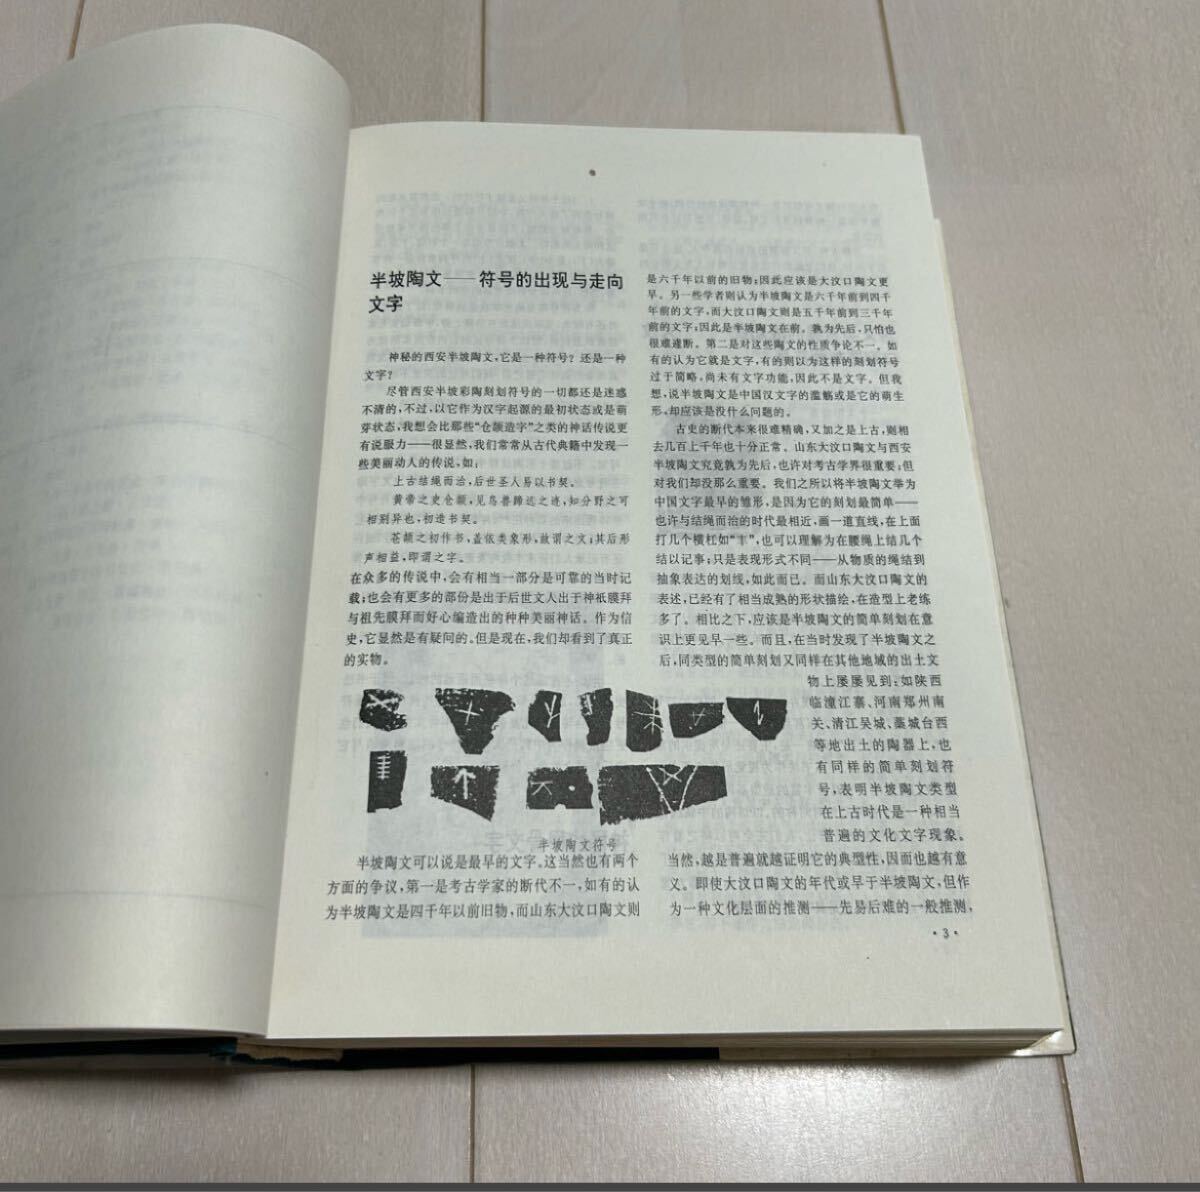 半坡陶文——符号的出现与走向
文字
神秘的西安半坡陶文,它是一种符号?还是一种
文字?
尽管西安半坡彩陶刻划符号的一切都还是迷惑
不清的,不过,以它作为汉字起源的最初状态或是萌
芽状态,我想会比那些“仓颉造字”之类的神话传说更
有说服力——很显然,我们常常从古代典籍中发现一
些美丽动人的传说,如:
上古结绳而治,后世圣人易以书契。
黄帝之史仓颉,见鸟兽蹄迒之迹,知分野之可
相别异也,初造书契。
苍颉之初作书,盖依类象形,故谓之文;其后形
声相益,即谓之字。
在众多的传说中,会有相当一部分是可靠的当时记
载;也会有更多的部份是出于后世文人出于神祇膜拜
与祖先膜拜而好心编造出的种种美丽神话。作为信
史,它显然是有疑问的。但是现在,我们却看到了真正
的实物。
半坡陶文符号
半坡陶文可以说是最早的文字。这当然也有两个
方面的争议,第一是考古学家的断代不一,如有的认
为半坡陶文是四千年以前旧物,而山东大汶口陶文则
是六千年以前的旧物;因此应该是大汶口陶文更
早。另一些学者则认为半坡陶文是六千年前到四千
年前的文字,而大汶口陶文则是五千年前到三千年
前的文字;因此是半坡陶文在前。孰为先后,只怕也
很难遽断。第二是对这些陶文的性质争论不一。如
有的认为它就是文字,有的则以为这样的刻划符号
过于简略,尚未有文字功能,因此不是文字。但我
想,说半坡陶文是中国汉文字的滥觞或是它的萌生
形,却应该是没什么问题的。
古史的断代本来很难精确,又加之是上古,则相
去几百上千年也十分正常。山东大汶口陶文与西安
半坡陶文究竟孰为先后,也许对考古学界很重要;但
对我们却没那么重要。我们之所以将半坡陶文举为
中国文字最早的雏形,是因为它的刻划最简单——
也许与结绳而治的时代最相近,画一道直线,在上面
打几个横杠如“丰”,也可以理解为在腰绳上结几个
结以记事;只是表现形式不同——从物质的绳结到
抽象表达的划线,如此而已。而山东大汶口陶文的
表述,已经有了相当成熟的形状描绘,在造型上老练
多了。相比之下,应该是半坡陶文的简单刻划在意
识上更见早一些。而且,在当时发现了半坡陶文之
后,同类型的简单刻划又同样在其他地域的出土文
物上屡屡见到:如陕西
临潼江寨、河南郑州南
关、清江吴城、藁城台西
等地出土的陶器上,也
有同样的简单刻划符
号,表明半坡陶文类型
在上古时代是一种相当
普遍的文化文字现象。
当然,越是普遍就越证明它的典型性,因而也越有意
义。即使大汶口陶文的年代或早于半坡陶文,但作
为一种文化层面的推测——先易后难的一般推测,
·3·